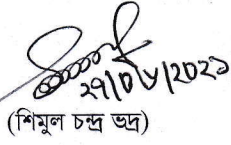 ২৭/০৮/২০২১
(শিমুল চন্দ্র ভদ্র)